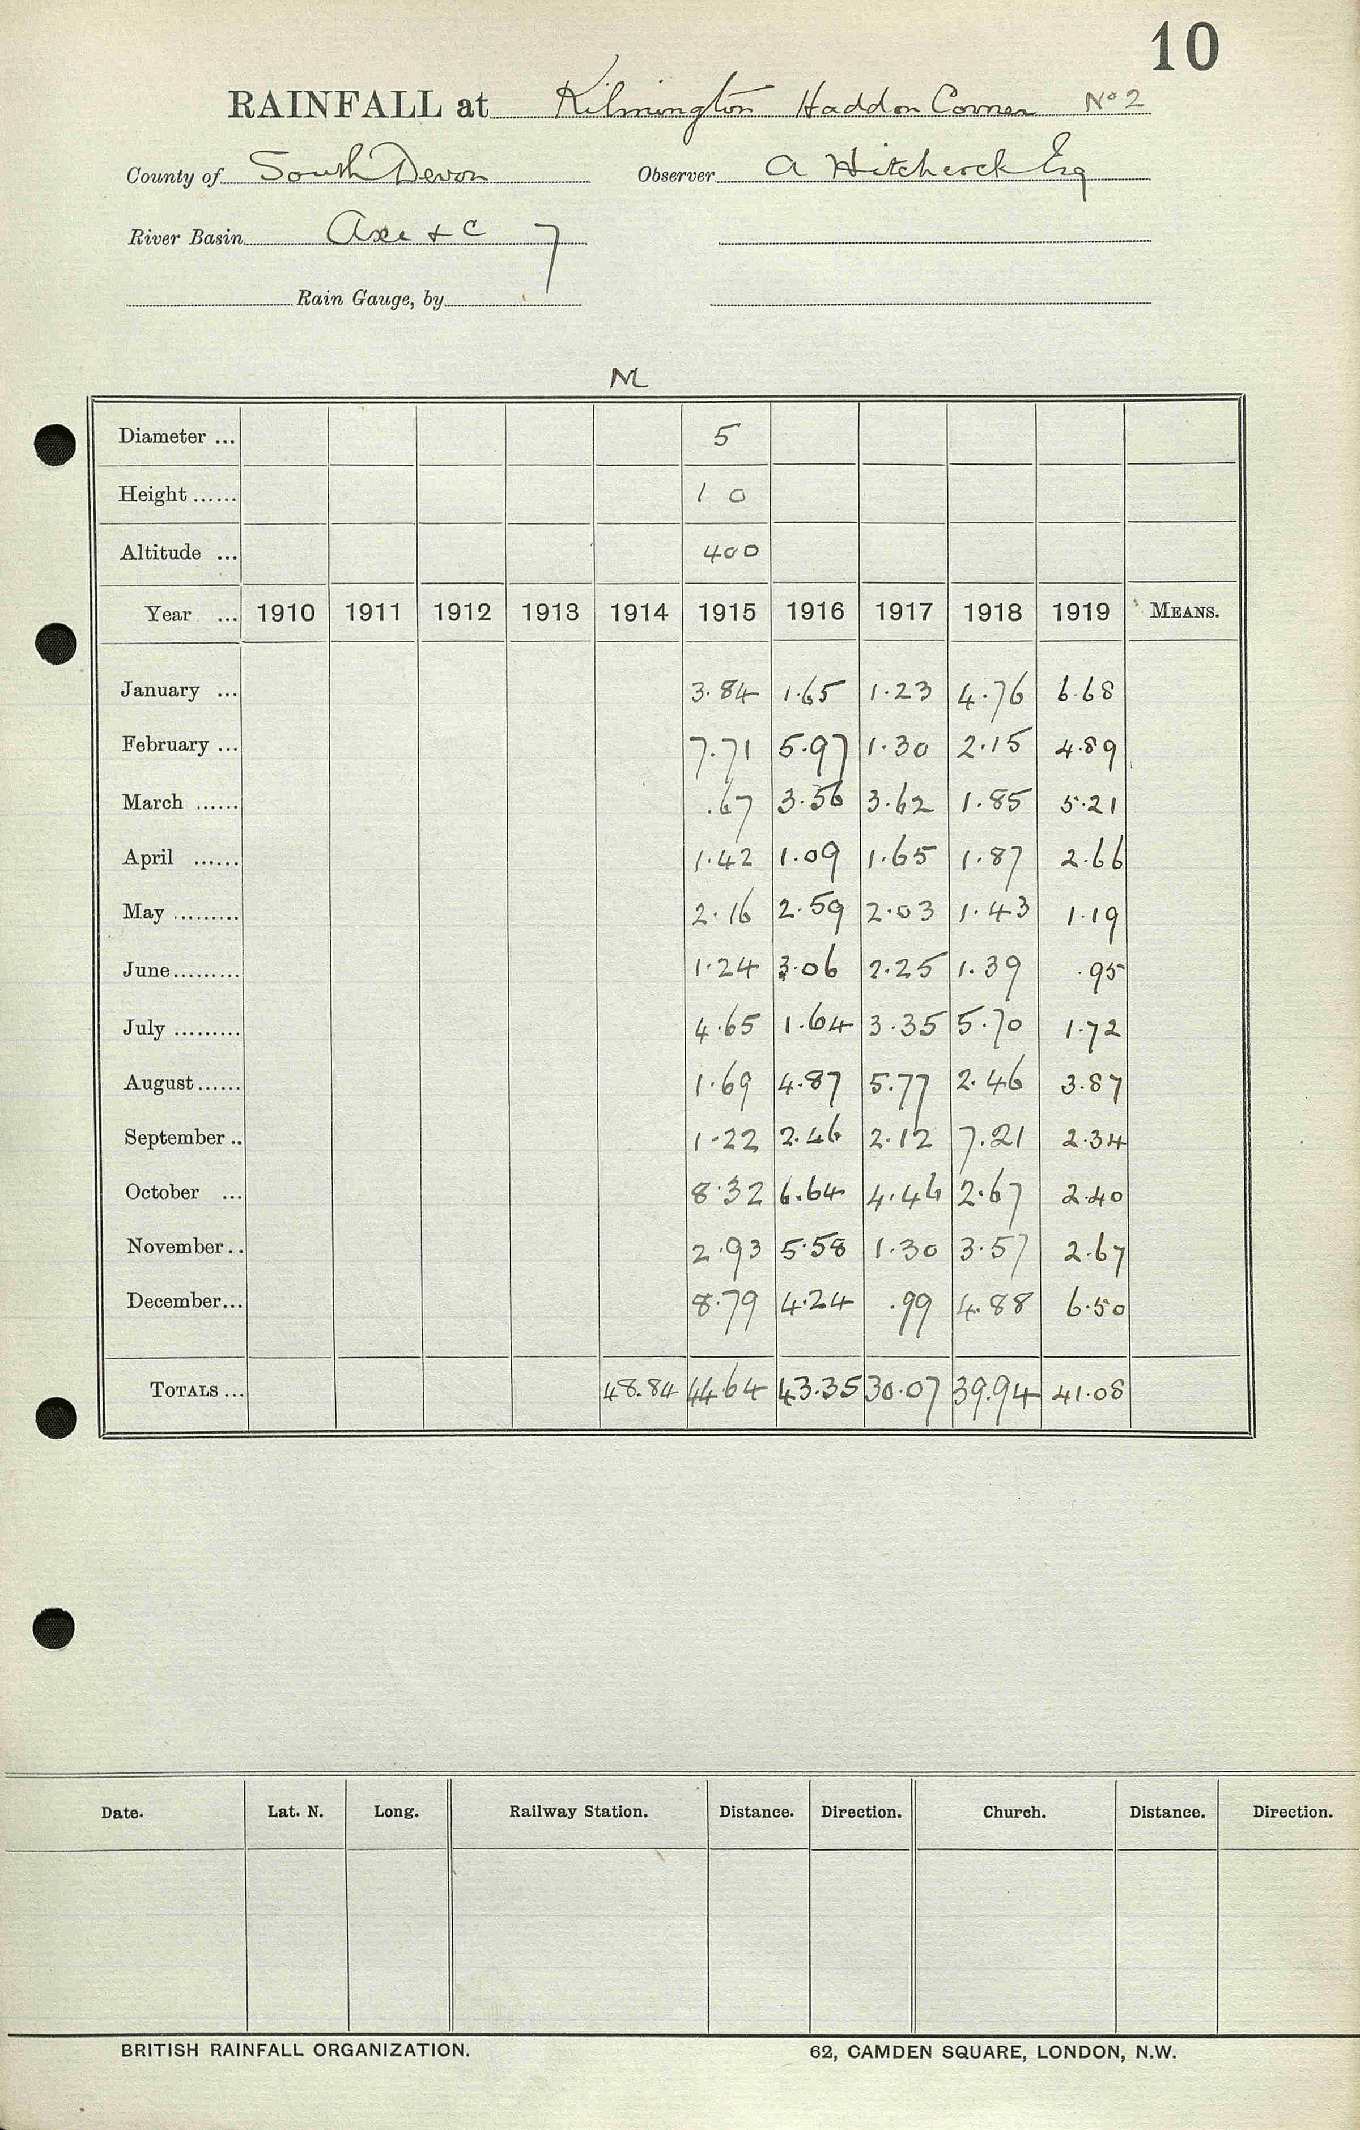 10
RAINFALL at Kilmington Haddon Corner No 2
County of South Devon Observer A Hitchcock Esq
River Basin Axe & c 7
Rain Gauge, by
M
Diameter ... 5
Height ...... 1 0
Altitude ... 400
Year ... 1910 1911 1912 1913 1914 1915 1916 1917 1918 1919 MEANS.
January ... 3.84 1.65 1.23 4.76 6.68
February ... 7.71 5.97 1.30 2.15 4.89
March ...... .67 3.56 3.62 1.85 5.21
April ...... 1.42 1.09 1.65 1.87 2.66
May ......... 2.16 2.59 2.03 1.43 1.19
June......... 1.24 3.06 2.25 1.39 .95
July ......... 4.65 1.64 3.35 5.70 1.72
August...... 1.69 4.87 5.77 2.46 3.87
September .. 1.22 2.46 2.12 7.21 2.34
October ... 8.32 6.64 4.46 2.67 2.40
November.. 2.93 5.58 1.30 3.57 2.67
December... 8.79 4.24 .99 4.88 6.50
TOTALS ... 48.84 44.64 43.35 30.07 39.94 41.08
Date. Lat. N. Long. Railway Station. Distance. Direction. Church. Distance. Direction.
BRITISH RAINFALL ORGANIZATION. 62, CAMDEN SQUARE, LONDON, N.W.